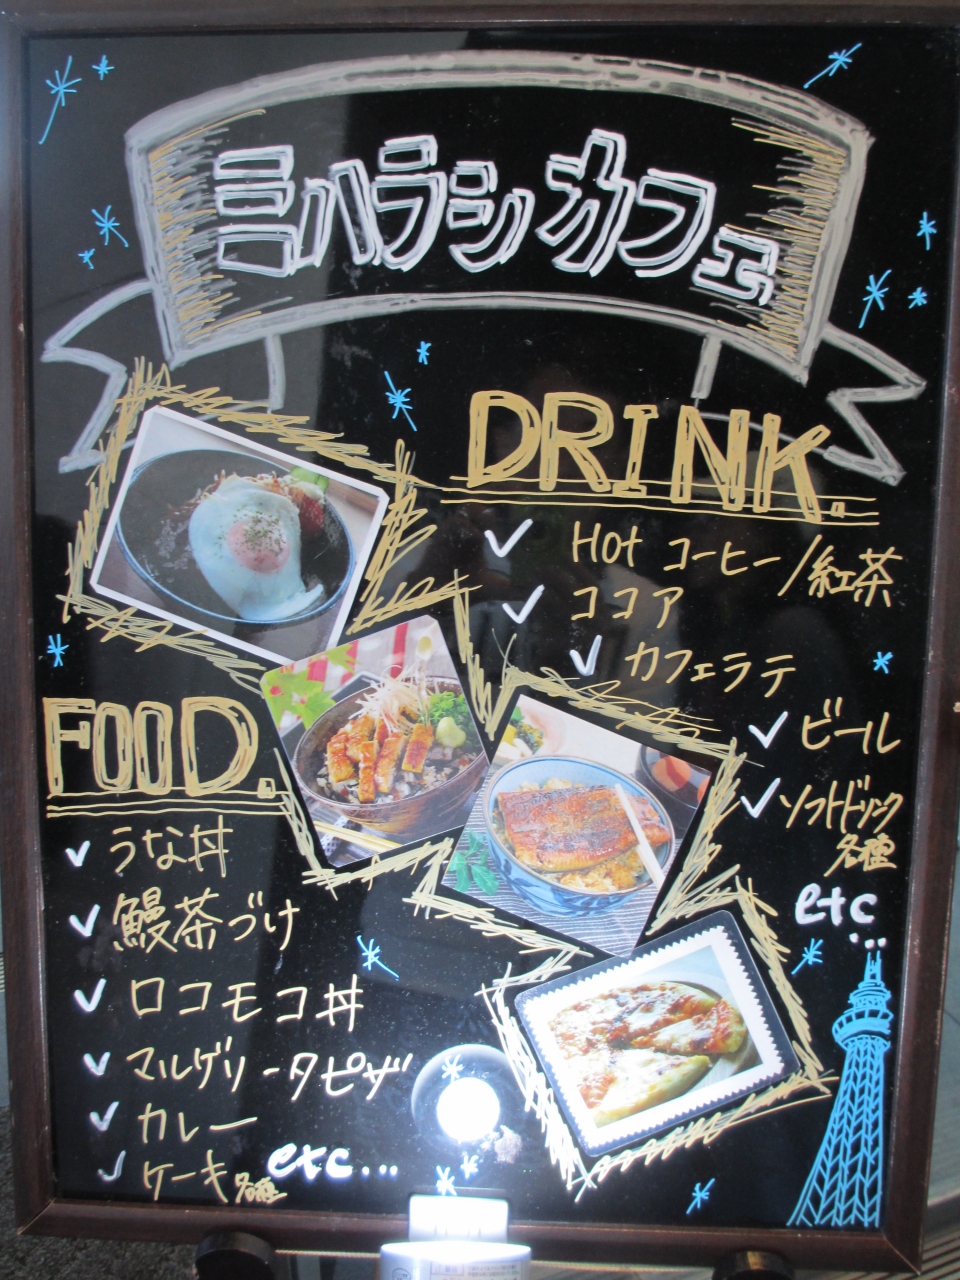 ミハラシカフェ
DRINK.
Hot コーヒー/紅茶
ココア
カフェラテ
ビール
ソフトドリンク
各種
etc...
FOOD.
うな丼
鰻茶づけ
ロコモコ丼
マルゲリータピザ
カレー
ケーキ各種
etc...